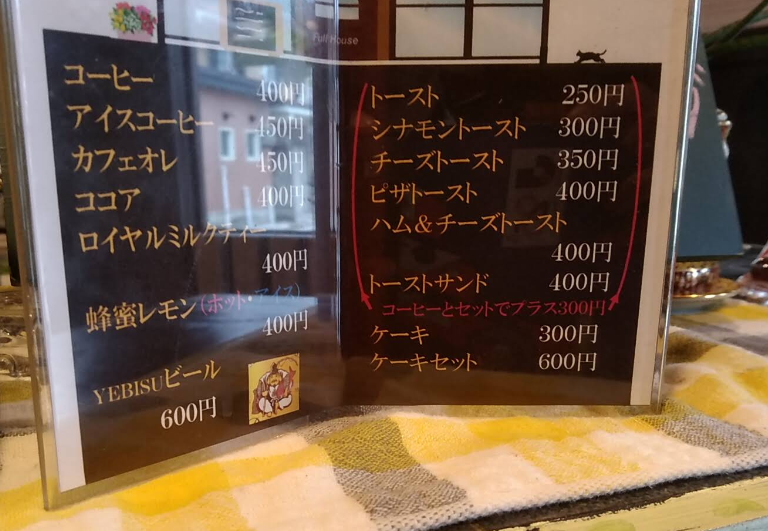 Full House
コーヒー 400円
アイスコーヒー 450円
カフェオレ 450円
ココア 400円
ロイヤルミルクティー
400円
蜂蜜レモン(ホット・アイス)
400円
YEBISUビール
600円
トースト 250円
シナモントースト 300円
チーズトースト 350円
ピザトースト 400円
ハム&チーズトースト
400円
トーストサンド 400円
コーヒーとセットでプラス300円
ケーキ 300円
ケーキセット 600円